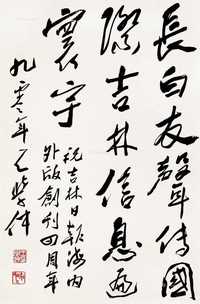 長白友聲傳國
際吉林信息遍
寰宇
祝吉林日報海内
外版創刊四周年
九零年